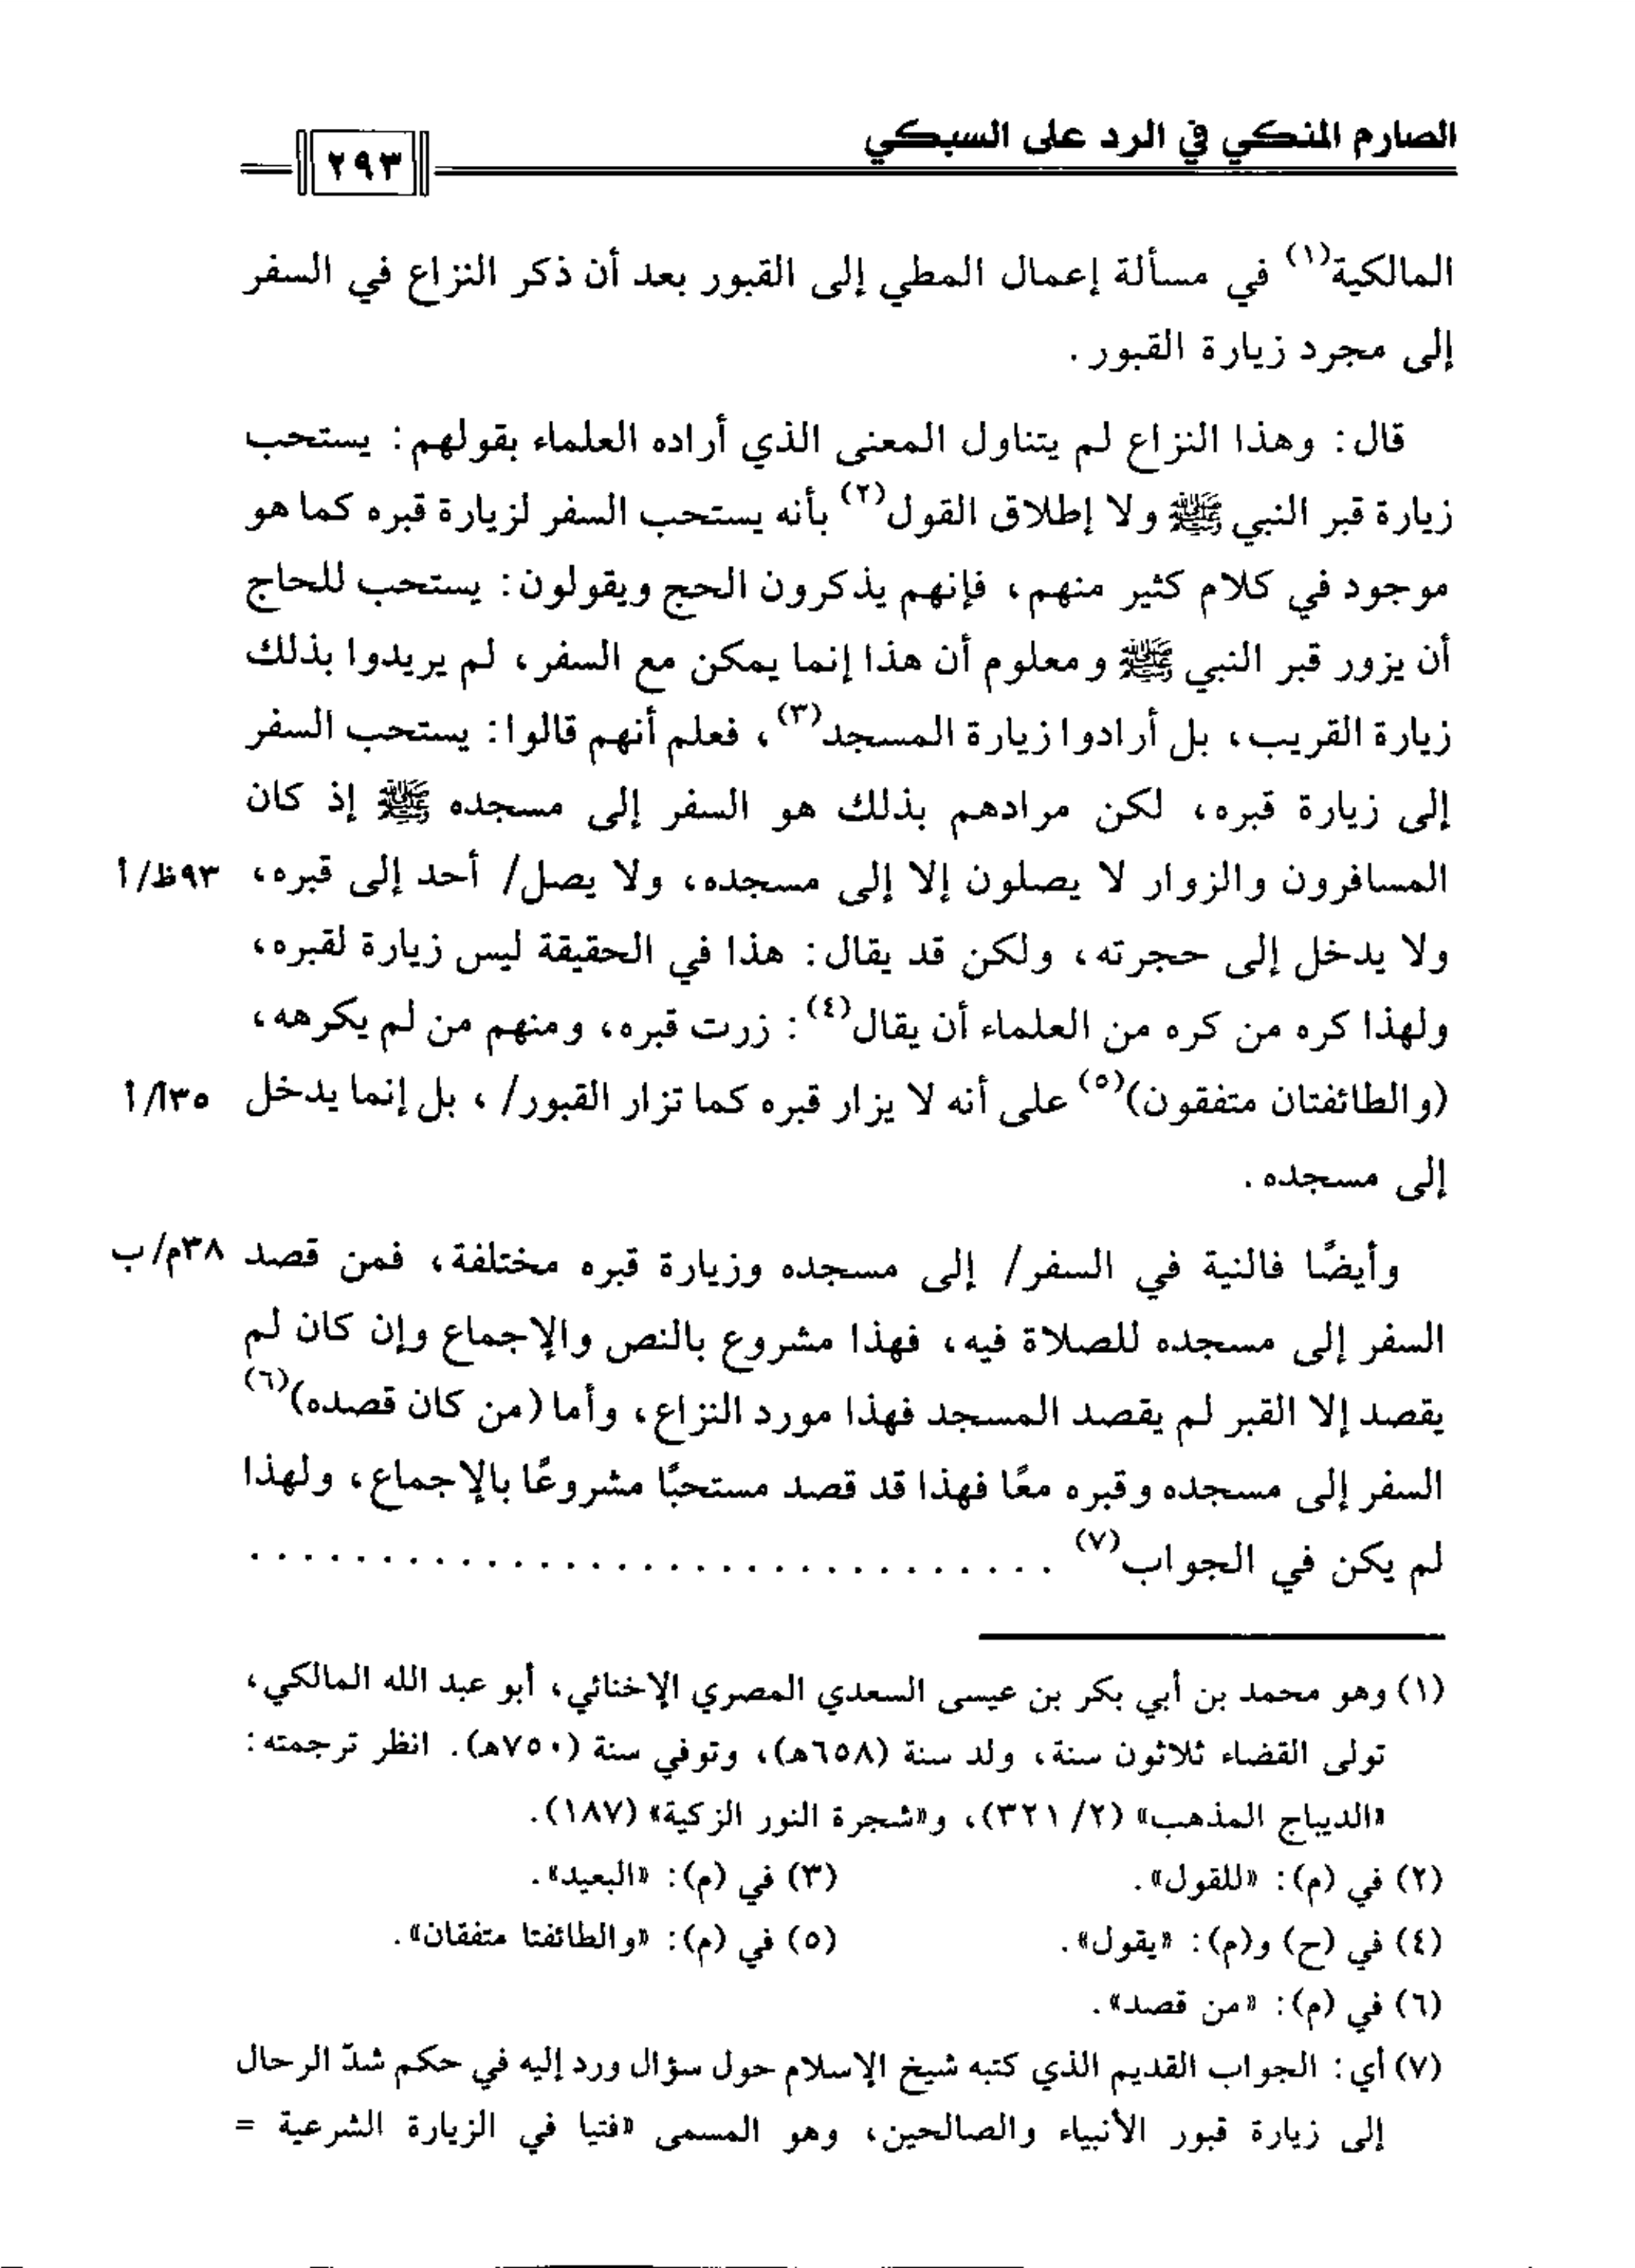 الصارم المنكي في الرد على السبكي
٢٩٣
المالكية(١) في مسألة إعمال المطي إلى القبور بعد أن ذكر النزاع في السفر
إلى مجرد زيارة القبور .
قال: وهذا النزاع لم يتناول المعنى الذي أراده العلماء بقولهم: يستحب
زيارة قبر النبي ﷺ ولا إطلاق القول(٢) بأنه يستحب السفر لزيارة قبره كما هو
موجود في كلام كثير منهم، فإنهم يذكرون الحج ويقولون: يستحب للحاج
أن يزور قبر النبي ﷺ ومعلوم أن هذا إنما يمكن مع السفر، لم يريدوا بذلك
زيارة القريب، بل أرادوا زيارة المسجد(٣)، فعلم أنهم قالوا: يستحب السفر
إلى زيارة قبره، لكن مرادهم بذلك هو السفر إلى مسجده ﷺ إذ كان
المسافرون والزوار لا يصلون إلا إلى مسجده، ولا يصل/ أحد إلى قبره، ٩٣ظ/أ
ولا يدخل إلى حجرته، ولكن قد يقال: هذا في الحقيقة ليس زيارة لقبره،
ولهذا كره من كره من العلماء أن يقال(٤): زرت قبره، ومنهم من لم يكرهه،
(والطائفتان متفقون)(٥) على أنه لا يزار قبره كما تزار القبور/ ، بل إنما يدخل ٣٥أ/أ
إلى مسجده .
وأيضًا فالنية في السفر/ إلى مسجده وزيارة قبره مختلفة، فمن قصد ٣٨م/ب
السفر إلى مسجده للصلاة فيه، فهذا مشروع بالنص والإجماع وإن كان لم
يقصد إلا القبر لم يقصد المسجد فهذا مورد النزاع، وأما (من كان قصده)(٦)
السفر إلى مسجده وقبره معًا فهذا قد قصد مستحبًا مشروعًا بالإجماع، ولهذا
لم يكن في الجواب(٧) . . . . . . . . . . . . . . . . . . . . . . . . . . . . . . .
(١) وهو محمد بن أبي بكر بن عيسى السعدي المصري الإخنائي، أبو عبد الله المالكي،
تولى القضاء ثلاثون سنة، ولد سنة (٦٥٨هـ)، وتوفي سنة (٧٥٠هـ). انظر ترجمته:
«الديباج المذهب» (٢/ ٣٢١)، و«شجرة النور الزكية» (١٨٧).
(٢) في (م): «للقول». (٣) في (م): «البعيد».
(٤) في (ح) و(م): «يقول». (٥) في (م): «والطائفتا متفقان».
(٦) في (م): «من قصد».
(٧) أي: الجواب القديم الذي كتبه شيخ الإسلام حول سؤال ورد إليه في حكم شدّ الرحال
إلى زيارة قبور الأنبياء والصالحين، وهو المسمى «فتيا في الزيارة الشرعية =